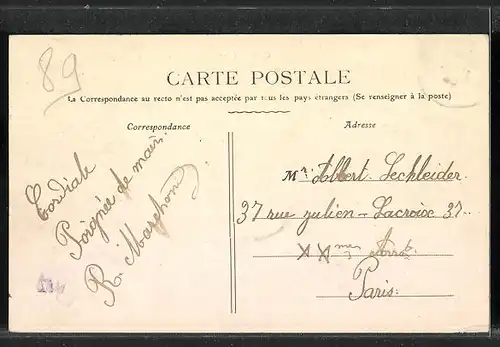 89
CARTE POSTALE
La Correspondance au recto n'est pas acceptée par tous les pays étrangers (Se renseigner à la poste)
Correspondance
Cordiale
Poignée de main.
R.
Adresse
Mr. Albert Lechleider.
37 rue Julien-Lacroix 37..
XXme Arrot.
Paris: